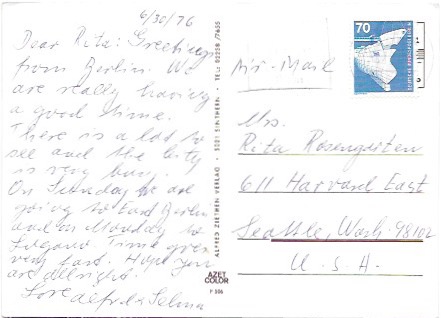 6/30/76
Dear Rita: Greetings
from Berlin. We
are really having
a good time.
There is a lot to
see and the city
is very busy.
On Sunday we are
going to East Berlin
and on Monday to
Lugano. Time goes
very fast. Hope you
are allright.
Love Alfred & Selma
ALFRED ZEETHEN VERLAG · 5021 SINTHERN · TEL.: 02238/7655
AZET
COLOR
P 306
70
DEUTSCHE BUNDESPOST BERLIN
Air-Mail
Mrs.
Rita Rosengarten
611 Harvard East
Seattle, Wash. 98102
U.S.A.